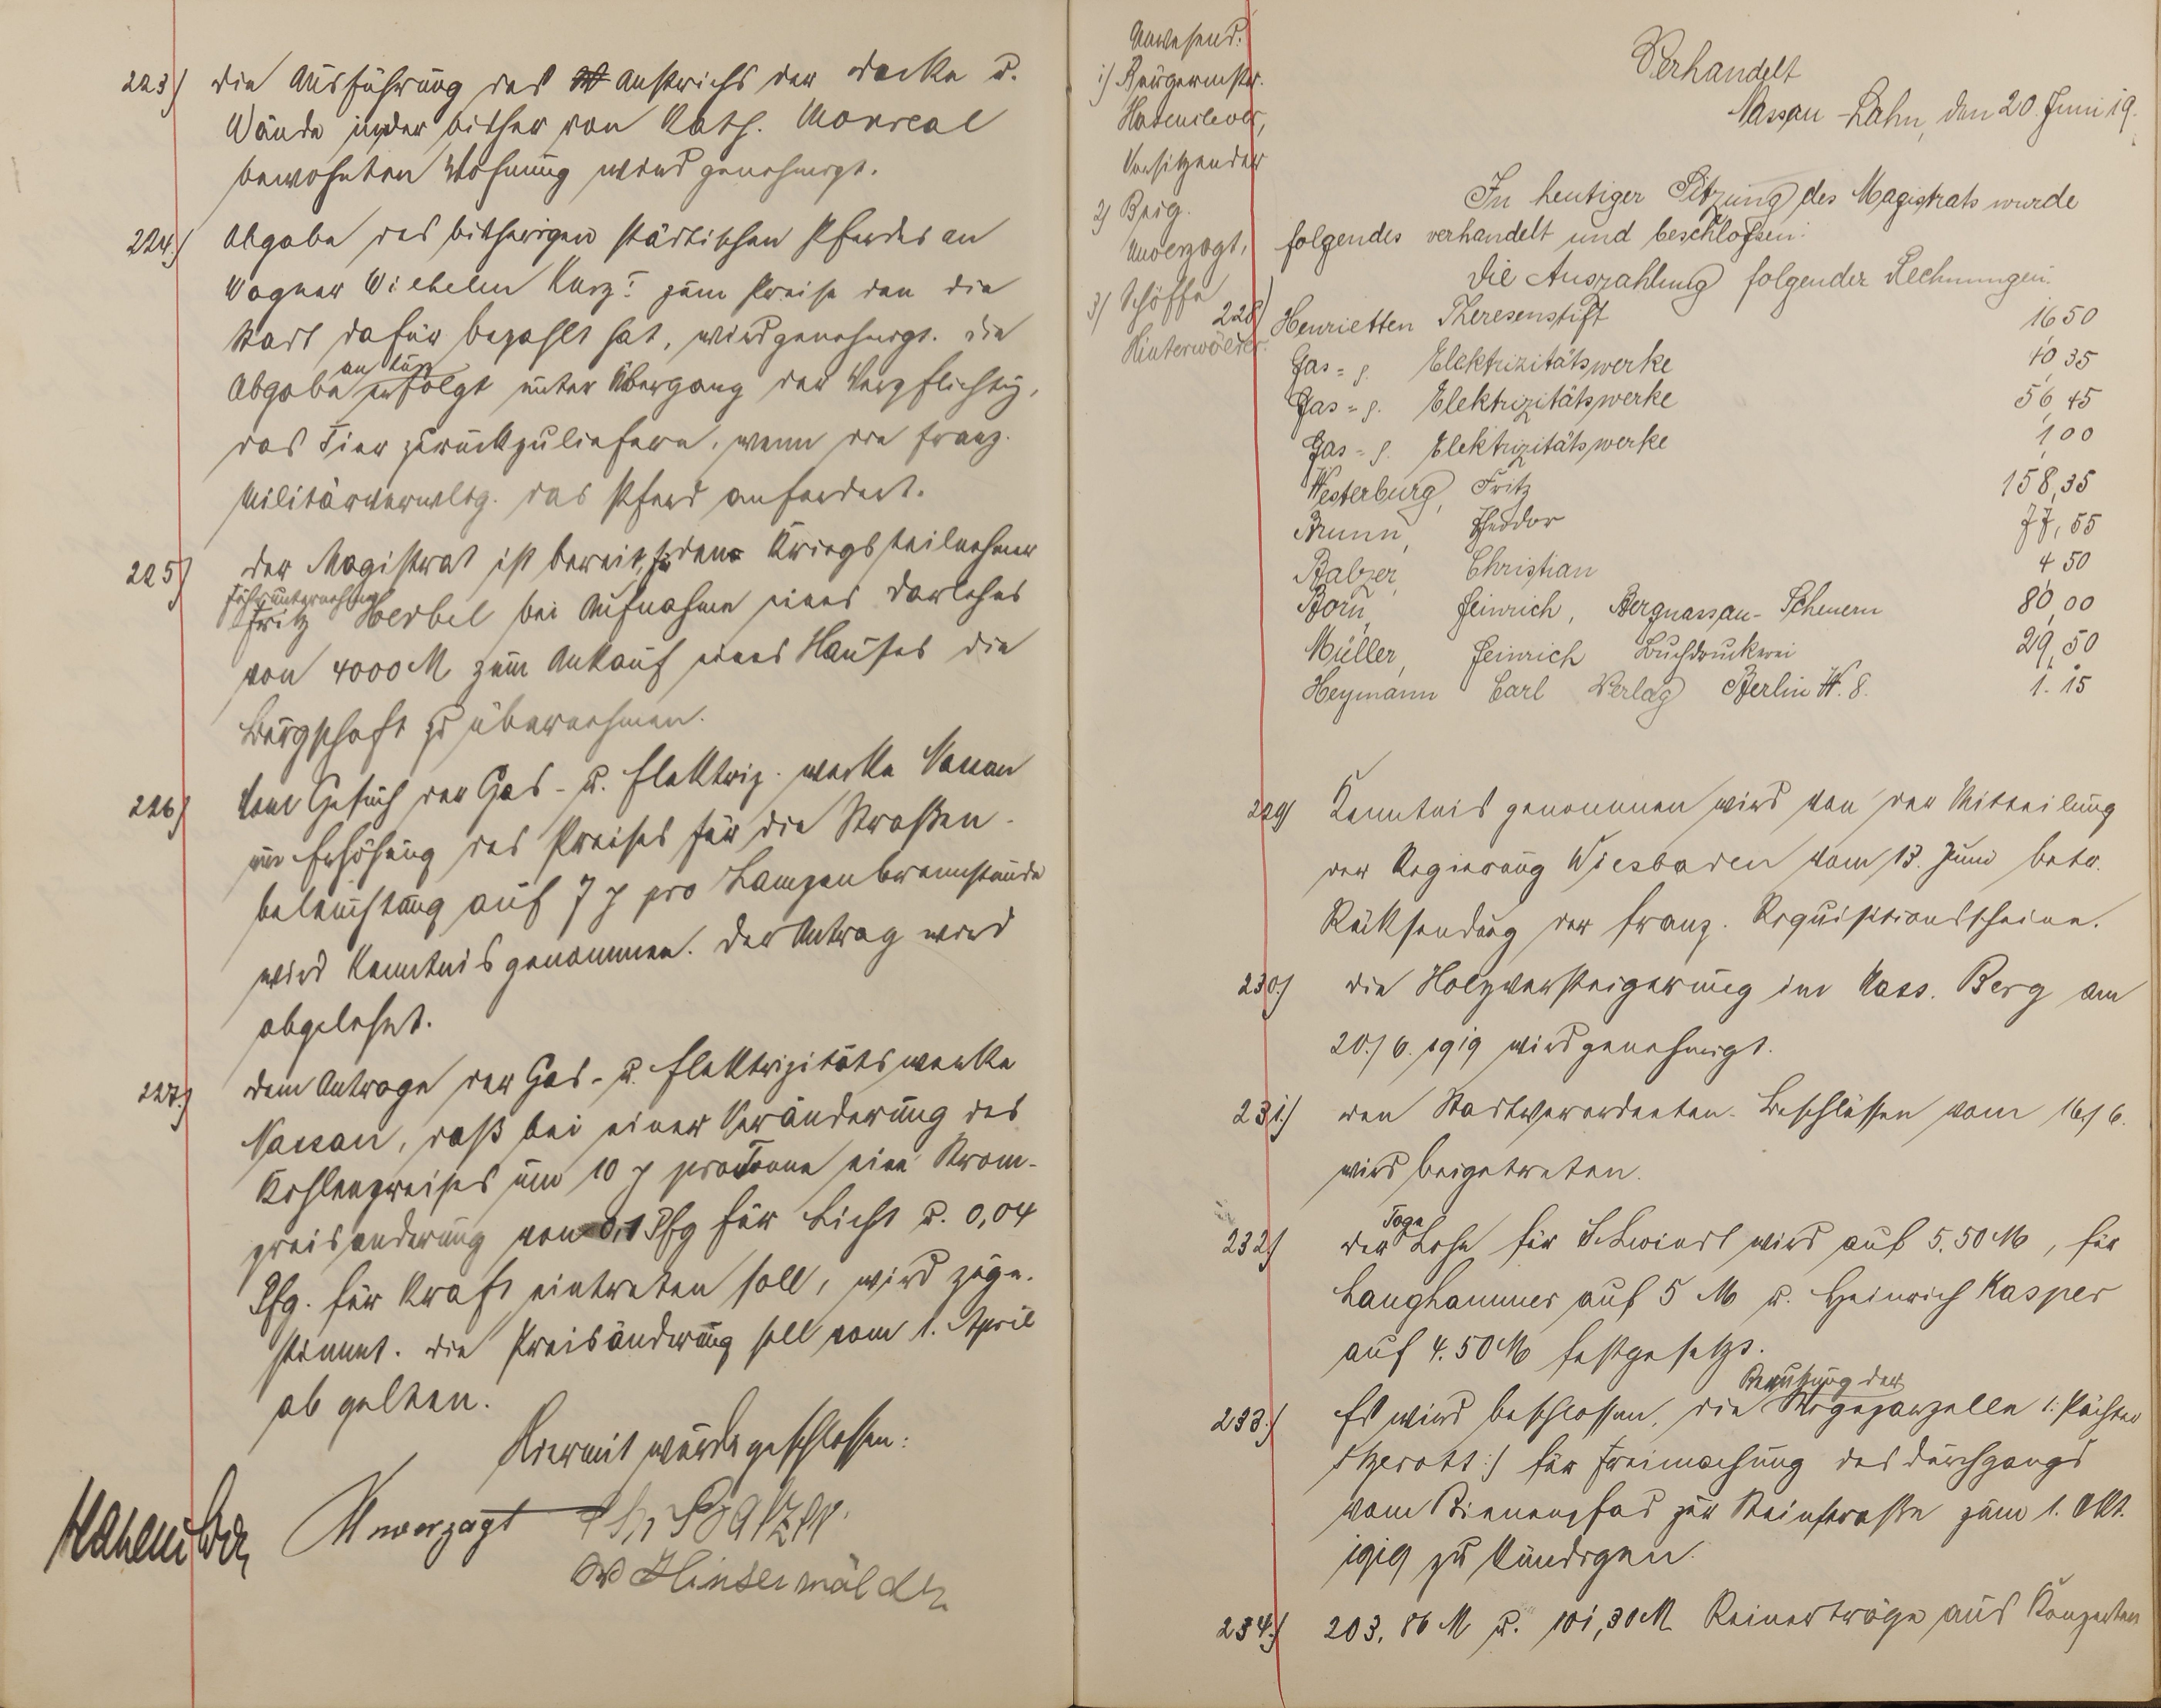 223) Die Ausführung des Anstrichs der Decke u.
Wände in der bisher von Kath. Monreal
bewohnten Wohnung wird genehmigt.
224.) Abgabe des bisherigen städtischen Pferdes an
Wagner Wilhelm Kurz I zum Preise den die
Stadt dafür bezahlt hat, wird genehmigt. Die
Abgabe erfolgt unter Übergang der Verpflichtg,
das Tier zurückzuliefern, wenn die franz.
Militärverwltg. das Pferd anfordert.
225) Der Magistrat ist bereit, dem Kriegsteilnehmer
Fuhrunternehmer
Fritz Herbel bei Aufnahme eines Darlehns
von 4000 M zum Ankauf eines Hauses die
Bürgschaft zu übernehmen.
226) Vom Gesuch der Gas- u. Elektriz. werke Nassau
um Erhöhung des Preises für die Straßen-
beleuchtung auf 7 ₰ pro Lampenbrennstunde
wird Kenntnis genommen. Der Antrag wird
abgelehnt.
227.) Dem Antrage der Gas- u. Elektrizitätswerke
Nassau, daß bei einer Veränderung des
Kohlenpreises um 10 ₰ pro Tonne eine Strom-
preisänderung von 0,1 Pfg für Licht u. 0,04
Pfg. für Kraft eintreten soll, wird zuge-
stimmt. Die Preisänderung soll vom 1. April
ab gelten.
Hiermit wurde geschlossen:
Hasenclever Unverzagt Chr Balzer
W Hinterwälder
Anwesend:
1) Bürgermstr.
Hasenclever,
Vorsitzender
2) Beig.
Unverzagt,
3) Schöffe
Hinterwälder.
Verhandelt
Nassau-Lahn, den 20. Juni 19.
In heutiger Sitzung des Magistrats wurde
folgendes verhandelt und beschlossen:
Die Auszahlung folgender Rechnungen:
228) Henrietten Theresenstift 16 50
Gas= p. Elektrizitätswerke 40,35
Gas= p. Elektrizitätswerke 56,45
Gas= p. Elektrizitätswerke 1,00
Westerburg, Fritz 158,35
Brunn, Theodor 77,55
Balzer, Christian 4 50
Born, Heinrich, Bergnassau-Scheuern 80,00
Müller, Heinrich Buchdruckerei 29,50
Heymann Carl Verlag Berlin W. 8. 1.15
229) Kenntnis genommen wird von der Mitteilung
der Regierung Wiesbaden vom 13. Juni betr.
Rücksendung der franz. Requisitionsscheine.
230.) Die Holzversteigerung im Nass. Berg am
20./6. 1919 wird genehmigt.
231.) Den Stadtverordneten-Beschlüssen vom 16./6.
wird beigetreten.
232.) Der Tage Lohn für Schwindt wird auf 5.50 M, für
Langhammer auf 5 M u. Heinrich Kasper
auf 4.50 M festgesetzt.
Benutzung der
233.) Es wird beschlossen, die Wegeparzelle /: Pächter
:/ für Freimachung des Durchgangs
vom Bienenpfad zur Steinstraße zum 1. Okt.
1919 zu kündigen.
234.) 203,86 M u. 101,30 M Reinerträge aus Konzerten